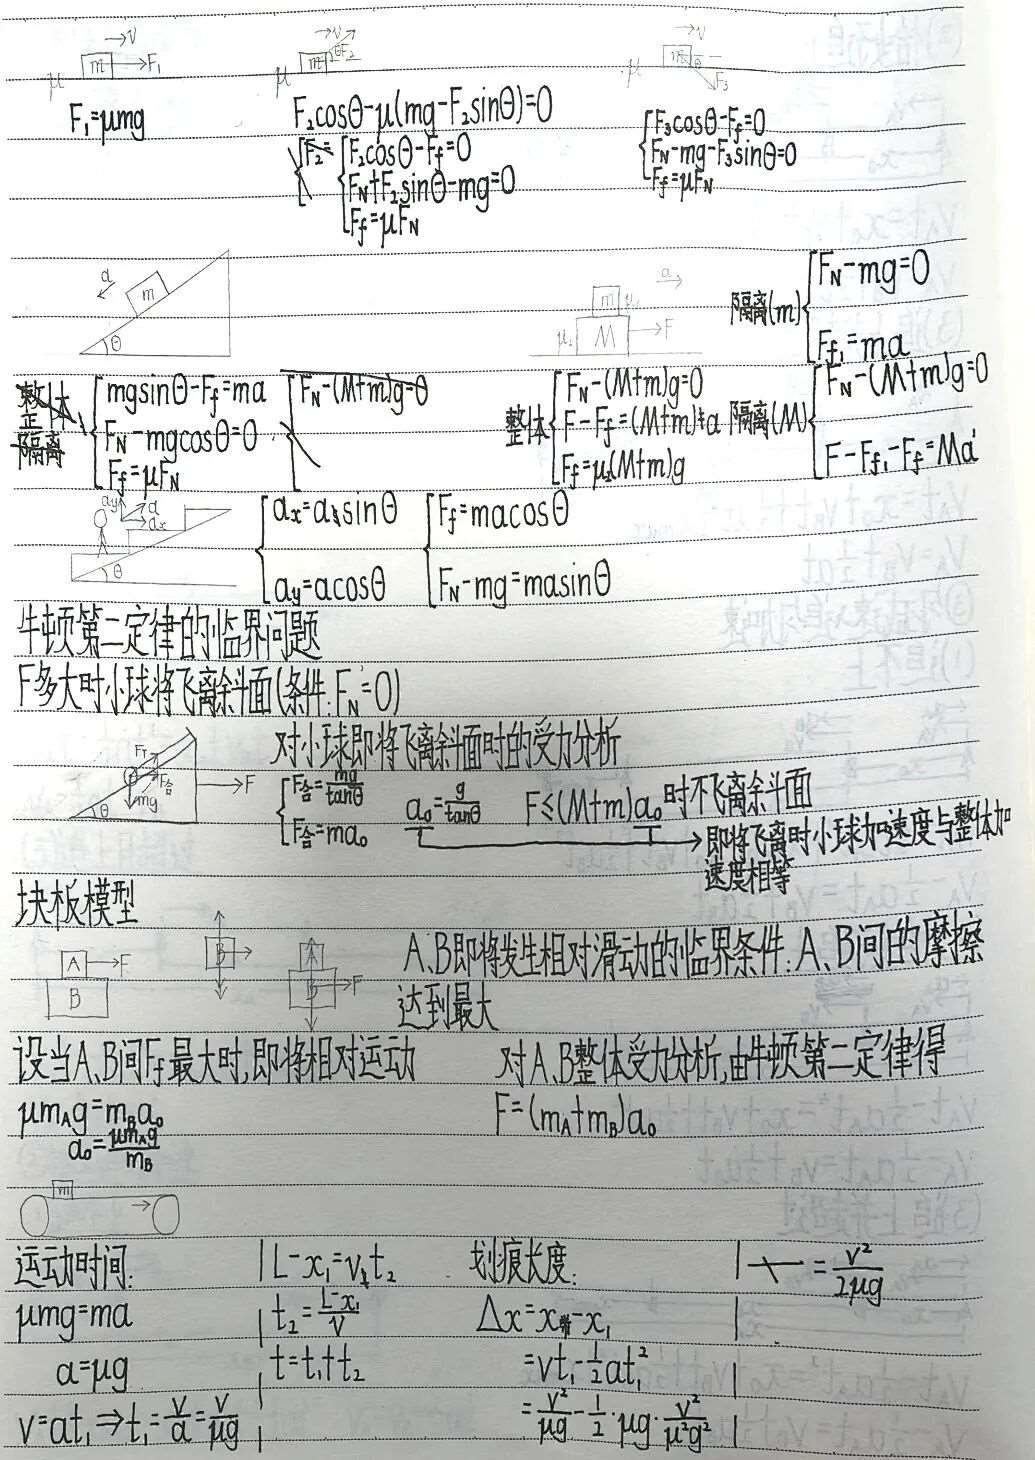 μ m →V →F₁
μ m →V θ F₂
μ m →V θ F₃
F₁=μmg
F₂cosθ-μ(mg-F₂sinθ)=0
F₂cosθ-Ff=0
FN+F₂sinθ-mg=0
Ff=μFN
F₃cosθ-Ff=0
FN-mg-F₃sinθ=0
Ff=μFN
a m θ
a m μ₁ M μ₂ F
隔离(m)
FN-mg=0
Ff₁=ma
隔离
mgsinθ-Ff=ma
FN-mgcosθ=0
Ff=μFN
FN-(M+m)g=0
整体
FN-(M+m)g=0
F-Ff=(M+m)a
Ff=μ₂(M+m)g
隔离(M)
FN-(M+m)g=0
F-Ff₁-Ff=Ma'
ay a ax θ
ax=asinθ
ay=acosθ
Ff=macosθ
FN-mg=masinθ
牛顿第二定律的临界问题
F多大时小球将飞离斜面(条件:FN=0)
对小球即将飞离斜面时的受力分析
FT F合 mg θ F
F合=mg/tanθ
F合=ma₀
a₀=g/tanθ
F≤(M+m)a₀时不飞离斜面
即将飞离时小球加速度与整体加
速度相等
块板模型
A F B
B
A B F
A、B即将发生相对滑动的临界条件:A、B间的摩擦
达到最大
设当A、B间Ff最大时,即将相对运动
对A、B整体受力分析,由牛顿第二定律得
μmAg=mBa₀
a₀=μmAg/mB
F=(mA+mB)a₀
m
运动时间:
μmg=ma
a=μg
v=at₁⇒t₁=v/a=v/μg
L-x₁=vt₂
t₂=(L-x₁)/v
t=t₁+t₂
划痕长度:
Δx=x带-x₁
=vt₁-½at₁²
=v²/μg-½·μg·v²/μ²g²
=v²/2μg